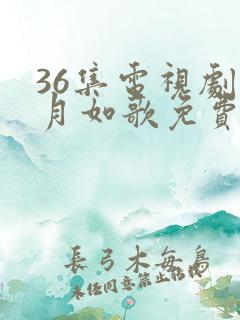 36集電視劇
月如歌免費
長弓木每鳥
未任同意禁止转载